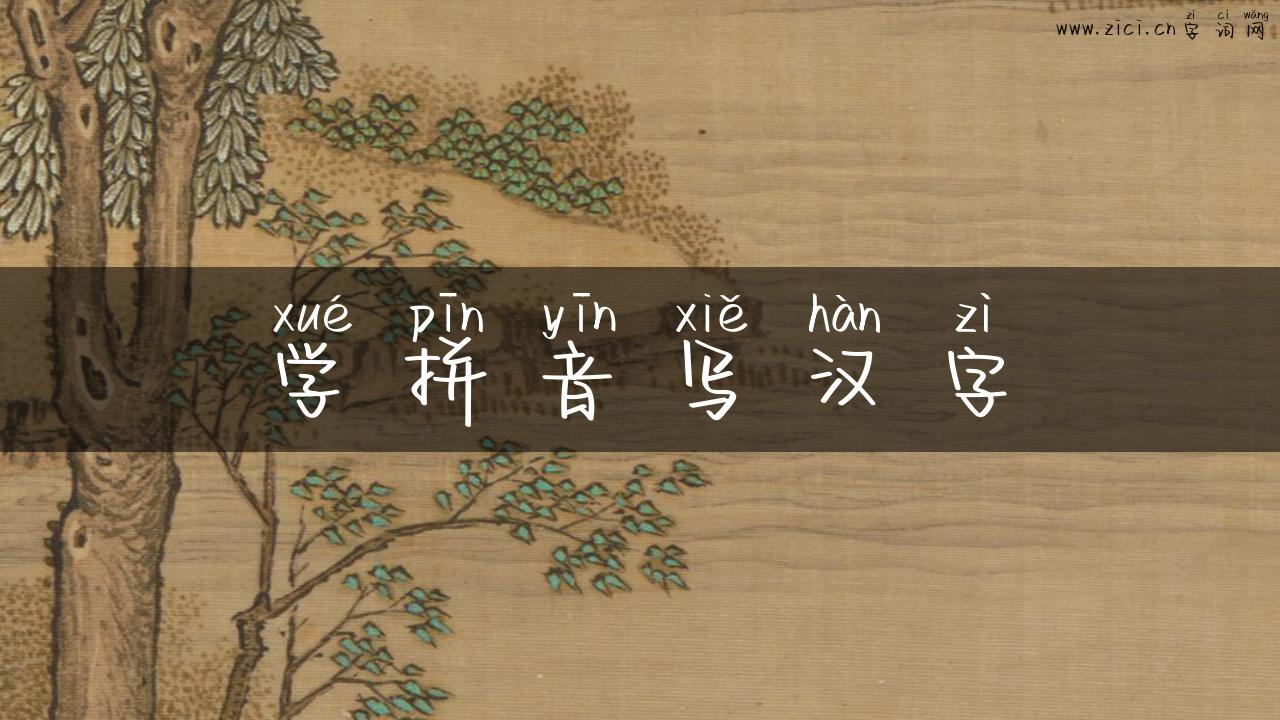 zì cí wǎng
www.zici.cn 字 词 网
xué pīn yīn xiě hàn zì
学 拼 音 写 汉 字